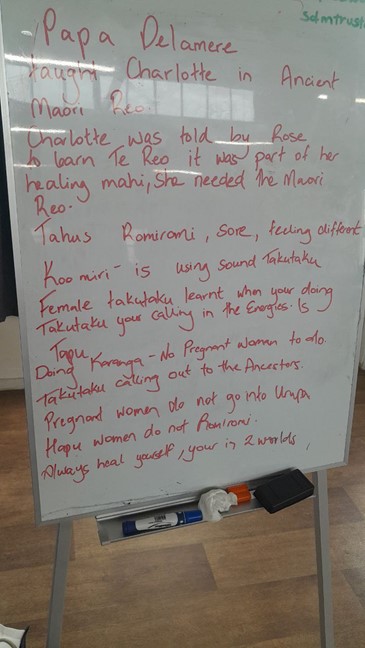 sdmtrust
Papa Delamere
taught Charlotte in Ancient
Maori Reo.
Charlotte was told by Rose
to learn Te Reo it was part of her
healing mahi, She needed the Maori
Reo.
Tahus Romiromi, sore, feeling different
Koo miri - is using sound Takutaku
Female takutaku learnt when your doing
Takutaku your calling in the Energies. Is
Tapu
Doing Karanga - No Pregnant women to do.
Takutaku calling out to the Ancestors.
Pregnant women do not go into Urupa
Hapu women do not Romiromi.
Always heal yourself, your in 2 worlds,